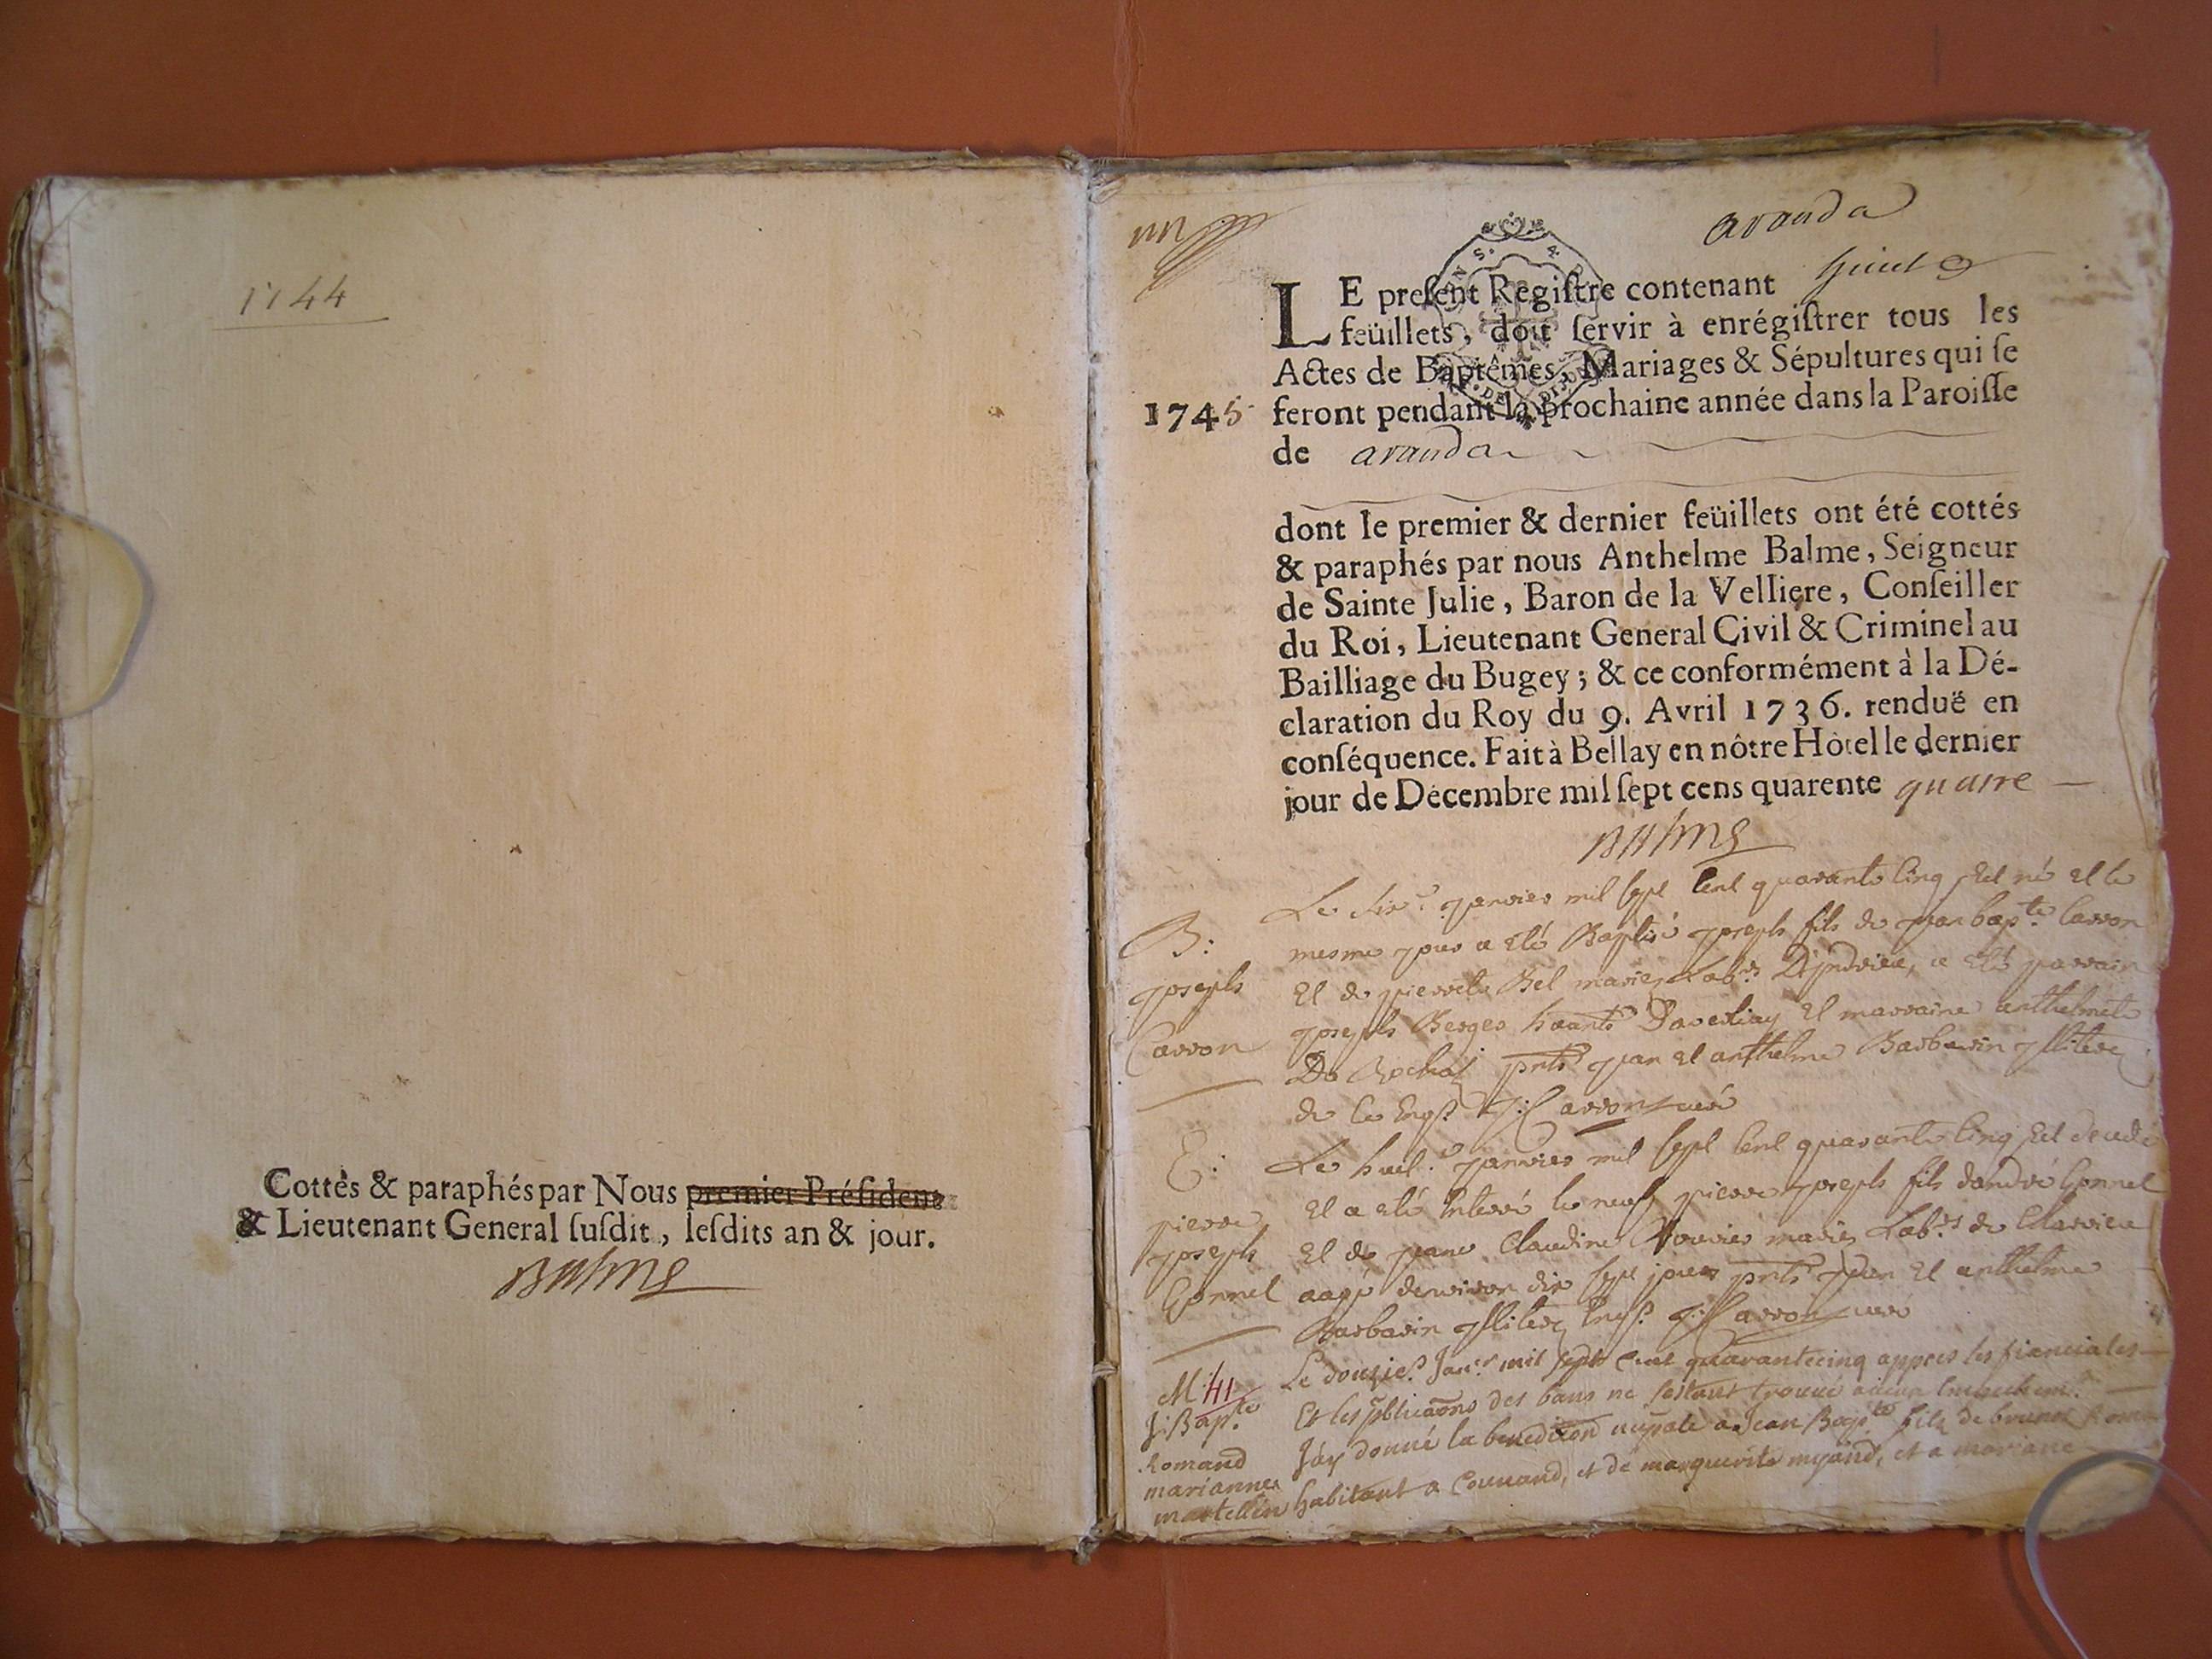 1744
Cottés & paraphés par Nous premier Président
& Lieutenant General susdit, lesdits an & jour.
Balme
un
aranda
LE present Registre contenant huict
feüillets, doit servir à enrégistrer tous les
Actes de Baptêmes, Mariages & Sépultures qui se
1745 feront pendant la prochaine année dans la Paroisse
de aranda
dont le premier & dernier feüillets ont été cottés
& paraphés par nous Anthelme Balme, Seigneur
de Sainte Julie, Baron de la Velliere, Conseiller
du Roi, Lieutenant General Civil & Criminel au
Bailliage du Bugey; & ce conformément à la Dé-
claration du Roy du 9. Avril 1736. renduë en
conséquence. Fait à Bellay en nôtre Hôtel le dernier
jour de Décembre mil sept cens quarente quatre
Balme
B:
joseph
Carron
Le janvier mil sept cent quarante cinq est né et le
mesme jour a eté Baptisé joseph fils de jean bapte Carron
et de pierrette Bel mariez Labrs a eté parrain
joseph Berger et marraine anthelmete
pnts jean et anthelme Barbarin
de ce enqs Carron curé
E:
pierre
joseph
Gonnel
Le huit janvier mil sept cent quarante cinq est decedé
et a eté enterré le neuf pierre joseph fils dandré Gonnel
et de jeane Claudine mariez Labrs de
aagé denviron dix sept jours pnts jean et anthelme
Barbarin enqs Carron curé
M 41
J: Bapte
Romand
marianne
martellin
Le douzie Janr mil sept cent quarantecinq appres les fiancialles
Et les publicaons des bans ne sestant trouué aucun
Jay donné la benediction nupale a Jean Bapte fils de
habitant a Counand, et de marguerite et a mariane